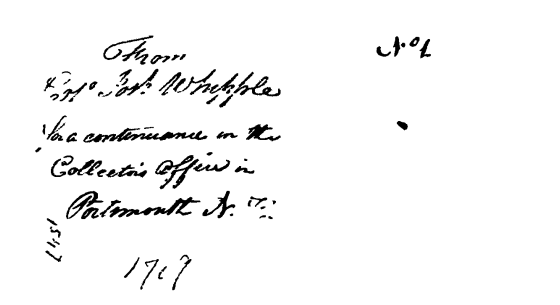 From
Jos. Whipple
for a continuance in the
Collector's Office in
Portsmouth N.
No 1